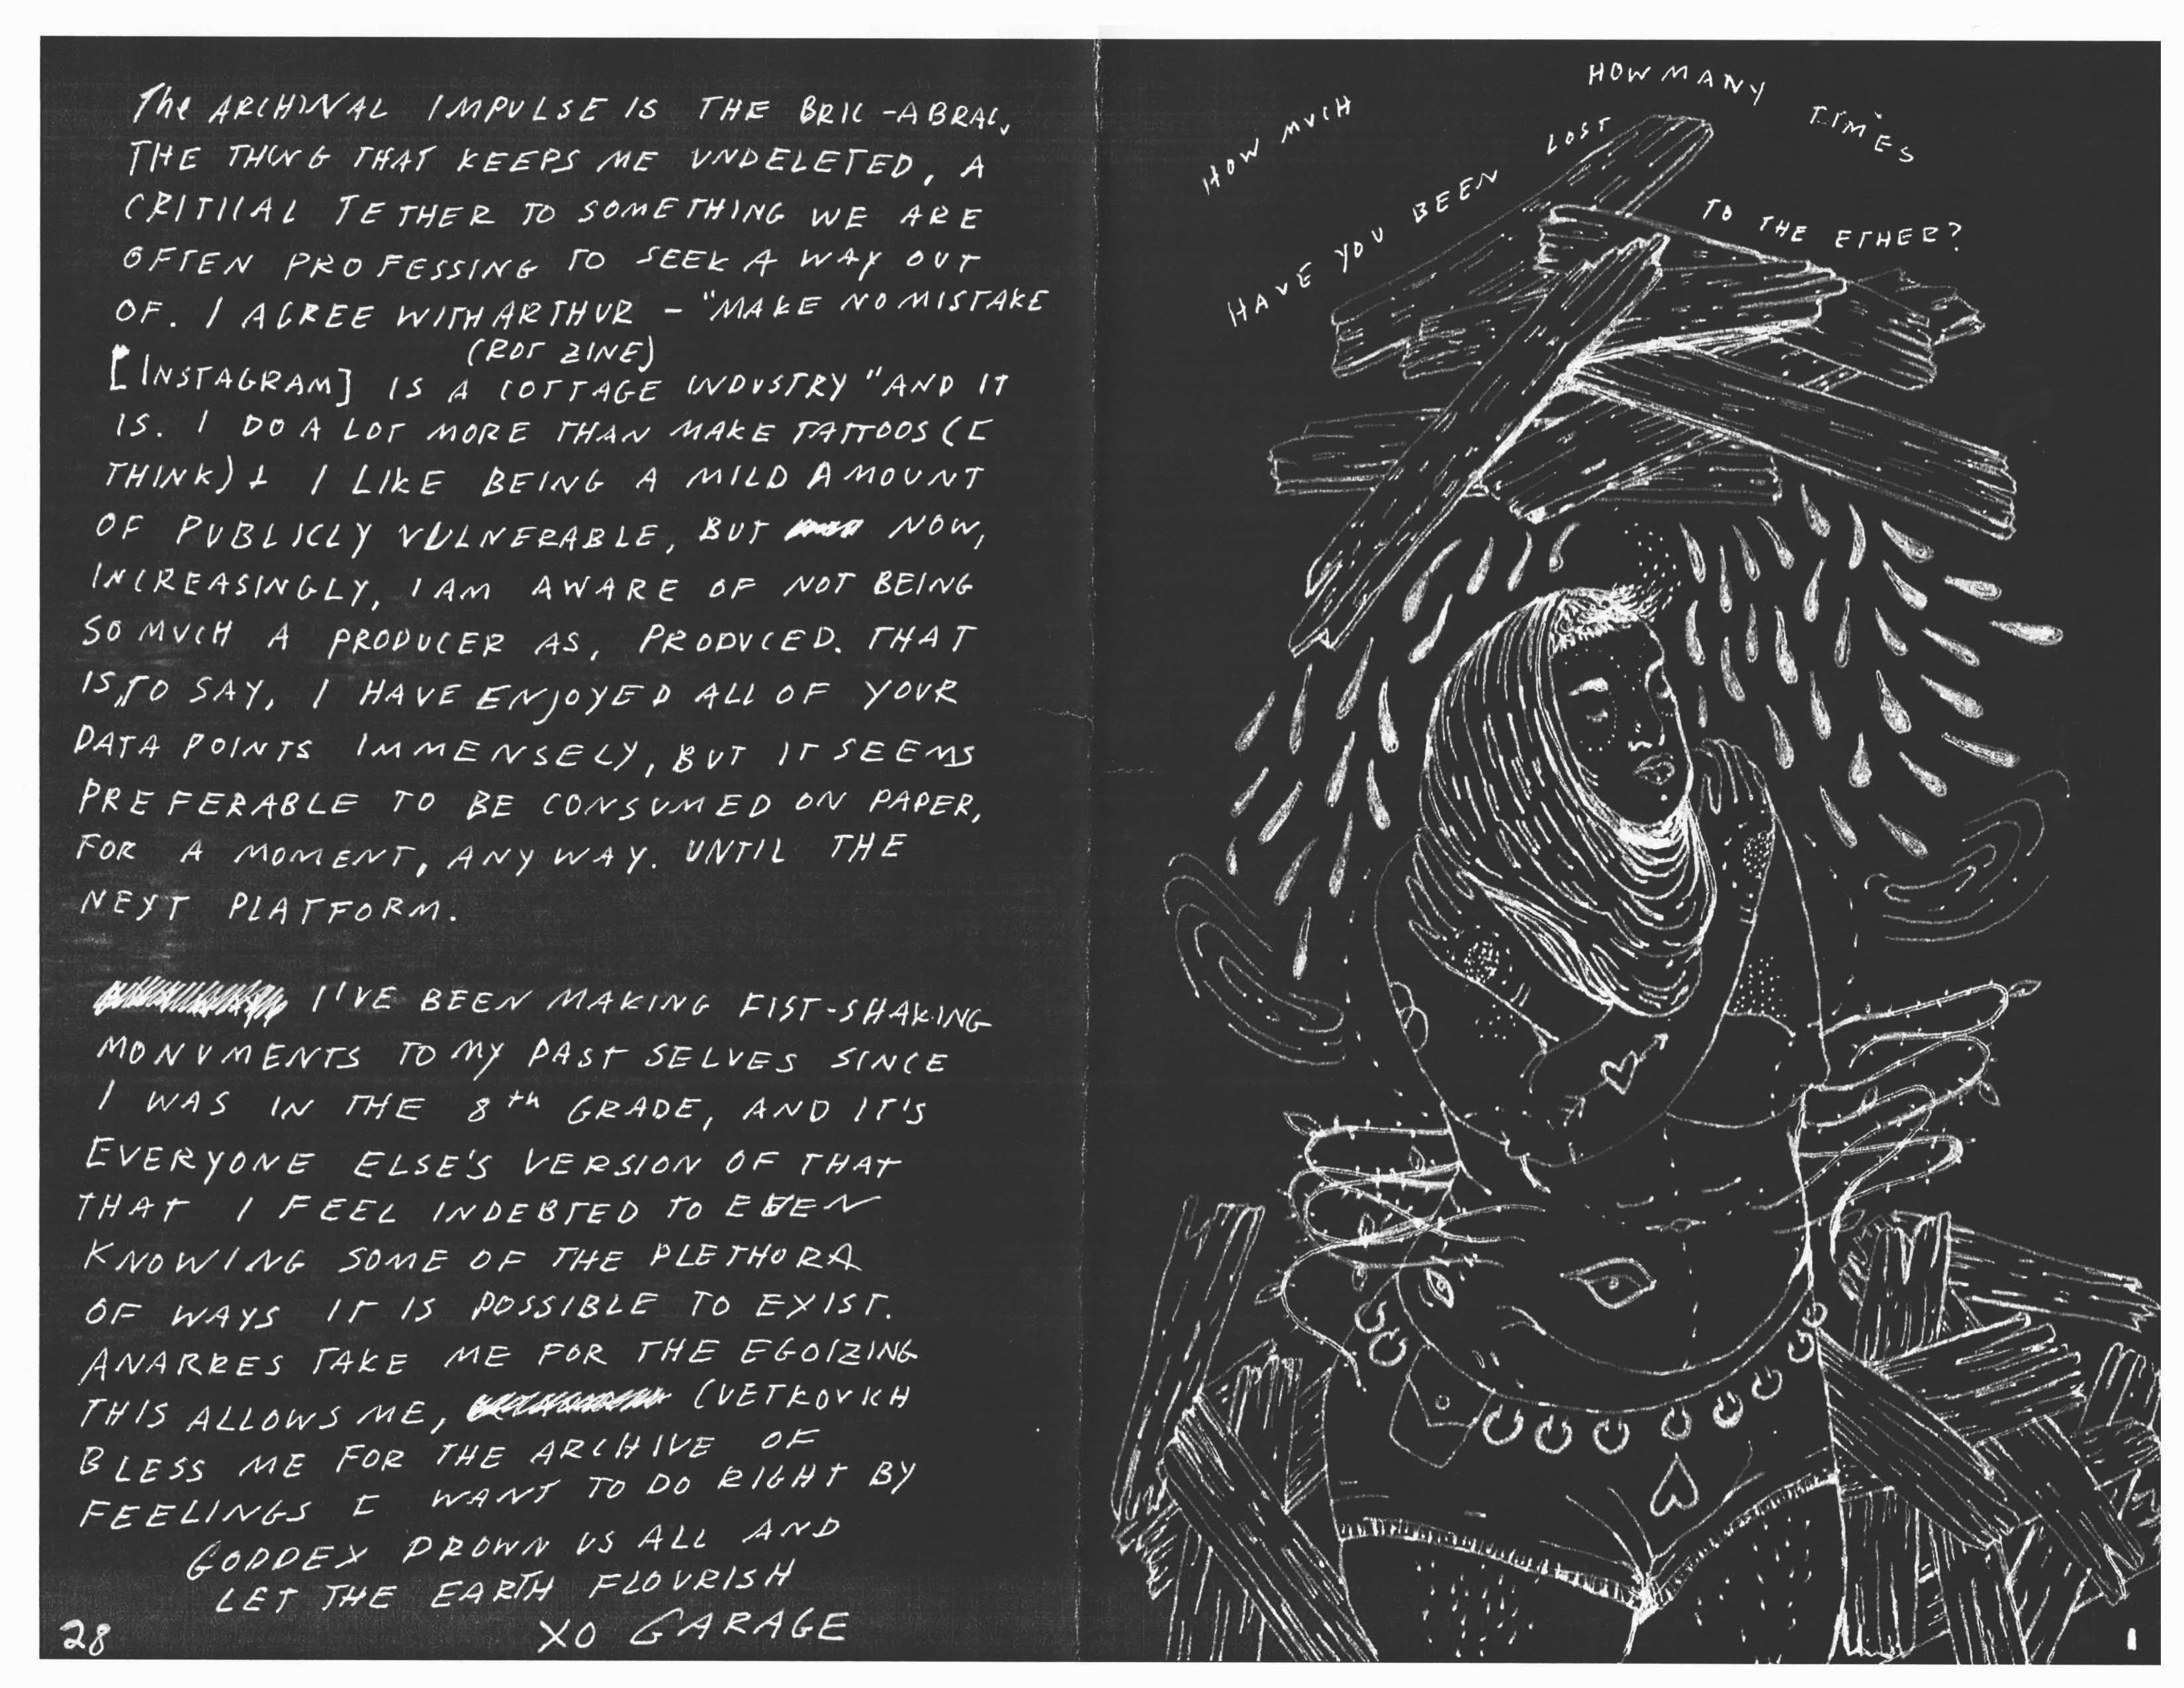 The ARCHIVAL IMPULSE IS THE BRIC-ABRAC,
THE THING THAT KEEPS ME UNDELETED, A
CRITICAL TETHER TO SOMETHING WE ARE
OFTEN PROFESSING TO SEEK A WAY OUT
OF. I AGREE WITH ARTHUR – "MAKE NO MISTAKE
(ROT ZINE)
[INSTAGRAM] IS A COTTAGE INDUSTRY" AND IT
IS. I DO A LOT MORE THAN MAKE TATTOOS (I
THINK) + I LIKE BEING A MILD AMOUNT
OF PUBLICLY VULNERABLE, BUT NOW,
INCREASINGLY, I AM AWARE OF NOT BEING
SO MUCH A PRODUCER AS, PRODUCED. THAT
IS, TO SAY, I HAVE ENJOYED ALL OF YOUR
DATA POINTS IMMENSELY, BUT IT SEEMS
PREFERABLE TO BE CONSUMED ON PAPER,
FOR A MOMENT, ANYWAY. UNTIL THE
NEXT PLATFORM.
I'VE BEEN MAKING FIST-SHAKING
MONUMENTS TO MY PAST SELVES SINCE
I WAS IN THE 8th GRADE, AND IT'S
EVERYONE ELSE'S VERSION OF THAT
THAT I FEEL INDEBTED TO EVEN
KNOWING SOME OF THE PLETHORA
OF WAYS IT IS POSSIBLE TO EXIST.
ANARRES TAKE ME FOR THE EGOIZING
THIS ALLOWS ME, CVETKOVICH
BLESS ME FOR THE ARCHIVE OF
FEELINGS I WANT TO DO RIGHT BY
GODDEX DROWN US ALL AND
LET THE EARTH FLOURISH
XO GARAGE
28
HOW MUCH
HOW MANY TIMES
HAVE YOU BEEN LOST
TO THE ETHER?
1